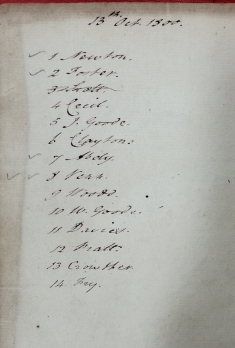 13th Oct 1800.
1 Newton.
2 Foster.
3 Scott.
4 Cecil.
5 J. Goode.
6 Clayton.
7 Abdy.
8 Venn.
9 Woodd.
10 W. Goode.
11 Davies.
12 Pratt.
13 Crowther.
14 Fry.